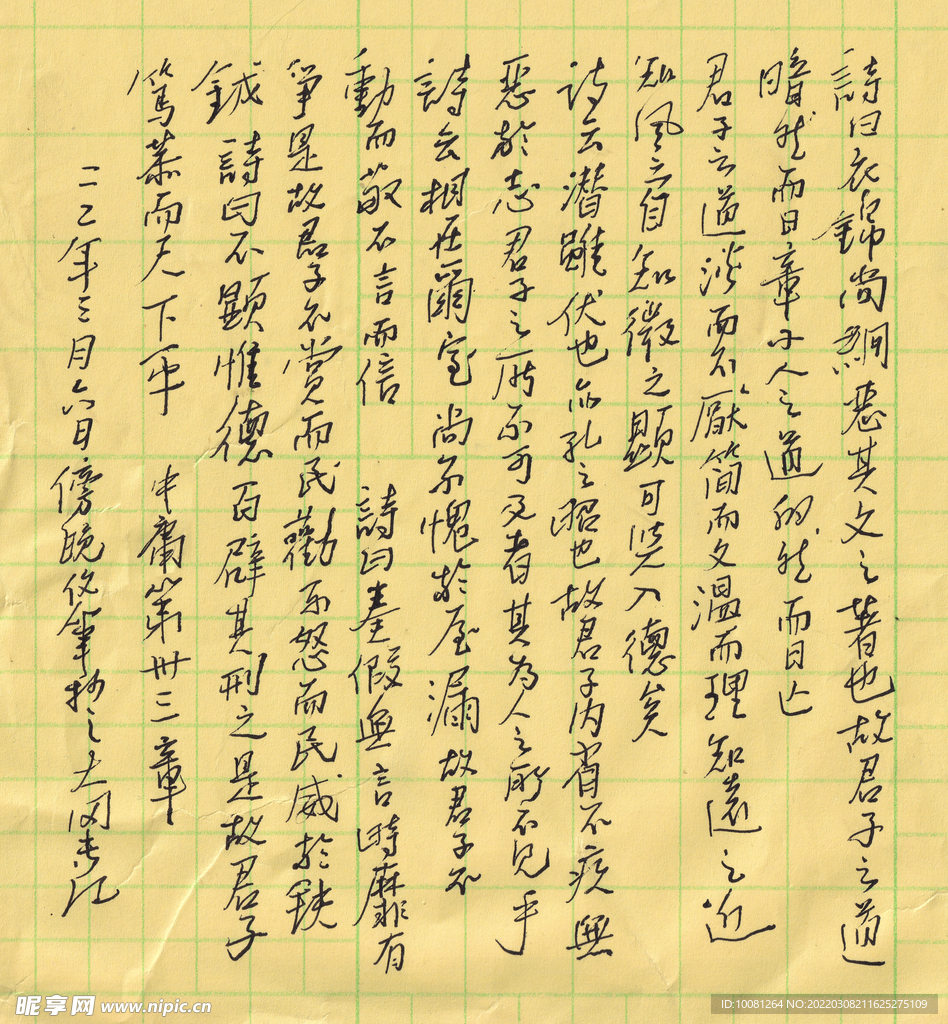 詩曰衣錦尚絅惡其文之著也故君子之道
暗然而日章小人之道的然而日亡
君子之道淡而不厭簡而文溫而理知遠之近
知風之自知微之顯可與入德矣
詩云潛雖伏也亦孔之昭也故君子內省不疚無
惡於志君子之所不可及者其為人之所不見乎
詩云相在爾室尚不愧於屋漏故君子不
動而敬不言而信 詩曰奏假無言時靡有
爭是故君子不賞而民勸不怒而民威於鈇
鉞 詩曰不顯惟德百辟其刑之是故君子
篤恭而天下平 中庸第卅三章
二二年三月六日傍晚
昵享网 www.nipic.cn
ID:10081264 NO:20220308211625275109